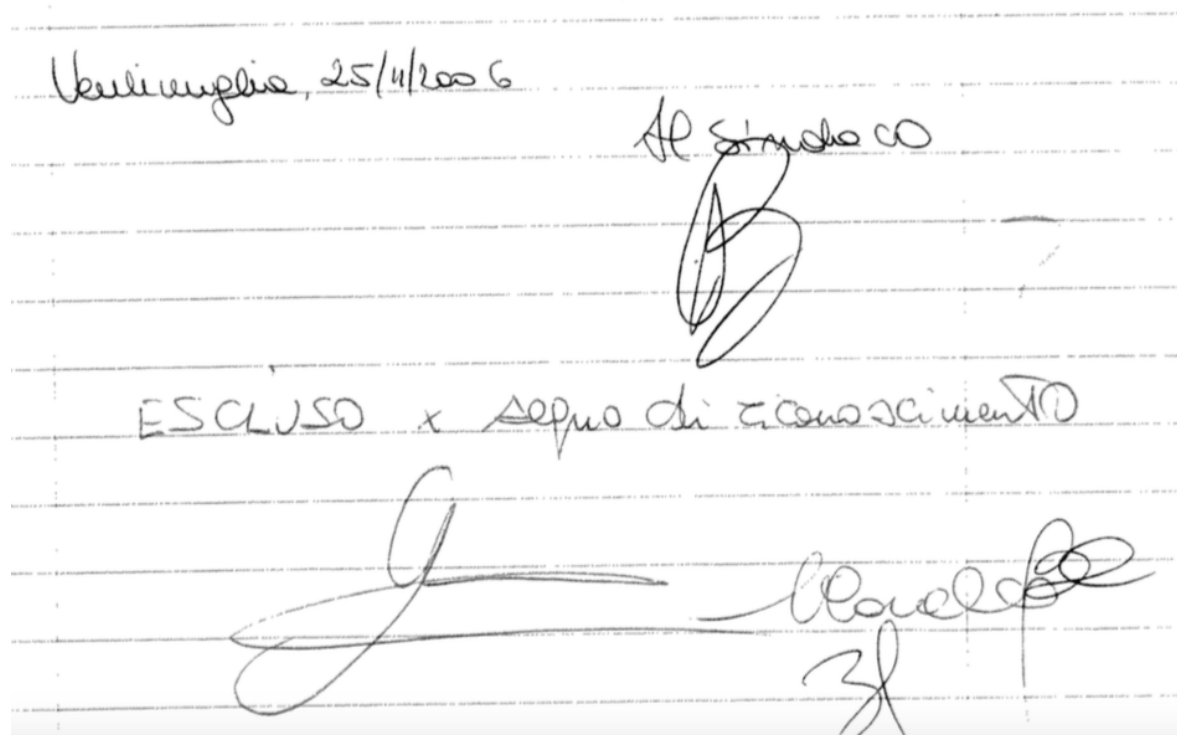 Ventimiglia, 25/11/2006
Il Sindaco
ESCLUSO x segno di riconoscimento